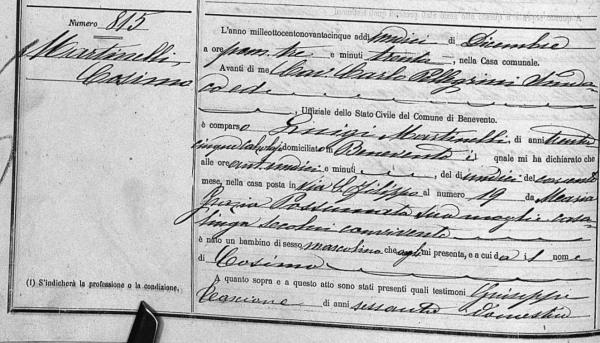 Numero 815
Martinelli
Cosimo
L'anno milleottocentonovantacinque addì undici di Dicembre
a ore pom. tre e minuti trenta, nella Casa comunale.
Avanti di me Cav. Carlo Pellegrini Sinda-
co ed
, Uffiziale dello Stato Civile del Comune di Benevento.
è comparso Luigi Martinelli, di anni trenta
cinque domiciliato in Benevento il quale mi ha dichiarato che
alle ore ant. undici e minuti, del dì undici del corrente
mese, nella casa posta in via S. Filippo al numero 19 da Maria
Grazia sua moglie casa-
linga secolui convivente
è nato un bambino di sesso mascolino che egli mi presenta, e a cui dà il nome
di Cosimo
A quanto sopra e a questo atto sono stati presenti quali testimoni Giuseppe
di anni sessanta domestico
(1) S'indicherà la professione o la condizione,